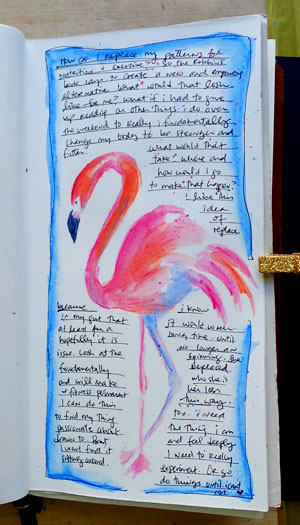 How can I replace my patterns for
nutrition & exercise? So the Robbins
book says to create a new and empowering
alternative. What would that look
like for me? What if I had to give
up reading or other things I do over
the weekend to really & fundamentally
change my body to be stronger and
fitter.
What would that
take? Where and
how would I go
to make that happen?
I like this
idea
of
replace
because
in my gut that
at least for a
hopefully it is
issue. Look at the
fundamentally
and will make
fitness permanent
I can do this
to find my thing
passionate about
drawn to. But
I won't find it
sitting around.
I know
it would
time until
no longer
spinning. She
replaced
who she is
her
this way.
too. I need
the thing I am
and feel deeply
I need to really
experiment. Or go
do things until I can
not